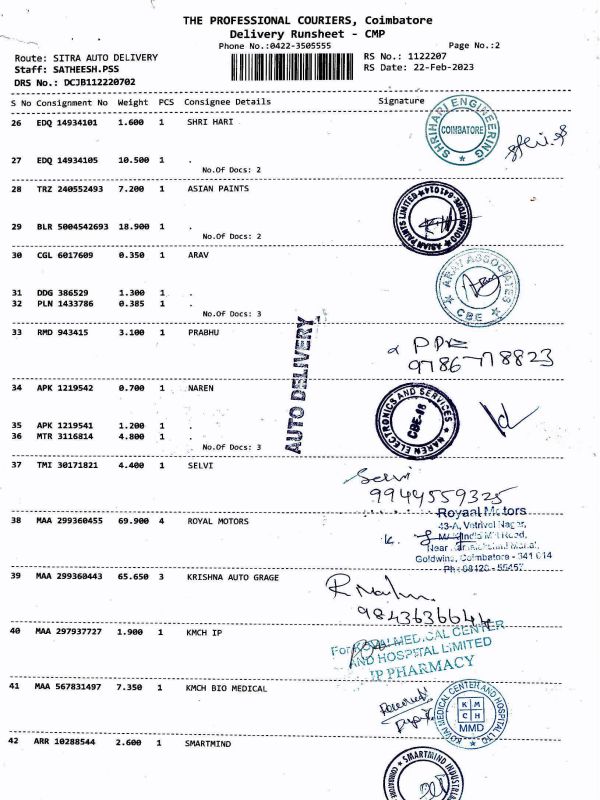 THE PROFESSIONAL COURIERS, Coimbatore
Delivery Runsheet - CMP
Phone No.:0422-3505555
Page No.:2
Route: SITRA AUTO DELIVERY
RS No.: 1122207
Staff: SATHEESH.PSS
RS Date: 22-Feb-2023
DRS No.: DCJB112220702
S No Consignment No Weight PCS Consignee Details Signature
26 EDQ 14934101 1.600 1 SHRI HARI
SHRIHARI ENGINEERING
COIMBATORE
27 EDQ 14934105 10.500 1 .
No.Of Docs: 2
28 TRZ 240552493 7.200 1 ASIAN PAINTS
ASIAN PAINTS LIMITED
29 BLR 5004542693 18.900 1 .
No.Of Docs: 2
30 CGL 6017609 0.350 1 ARAV
ARAV ASSOCIATES
CBE
31 DDG 386529 1.300 1 .
32 PLN 1433786 0.385 1 .
No.Of Docs: 3
33 RMD 943415 3.100 1 PRABHU
AUTO DELIVERY
34 APK 1219542 0.700 1 NAREN
NAREN ELECTRONICS AND SERVICES
35 APK 1219541 1.200 1 .
36 MTR 3116814 4.800 1 .
No.Of Docs: 3
37 TMI 30171821 4.400 1 SELVI
Selvi
9944559325
38 MAA 299360455 69.900 4 ROYAL MOTORS
Royaal Motors
43-A, Vetrivel Nagar,
Near
Goldwins, Coimbatore - 641 014
39 MAA 299360443 65.650 3 KRISHNA AUTO GRAGE
40 MAA 297937727 1.900 1 KMCH IP
For KOVAI MEDICAL CENTER
AND HOSPITAL LIMITED
IP PHARMACY
41 MAA 567831497 7.350 1 KMCH BIO MEDICAL
KOVAI MEDICAL CENTER AND HOSPITAL LTD
K M
C H
MMD
42 ARR 10288544 2.600 1 SMARTMIND
SMARTMIND